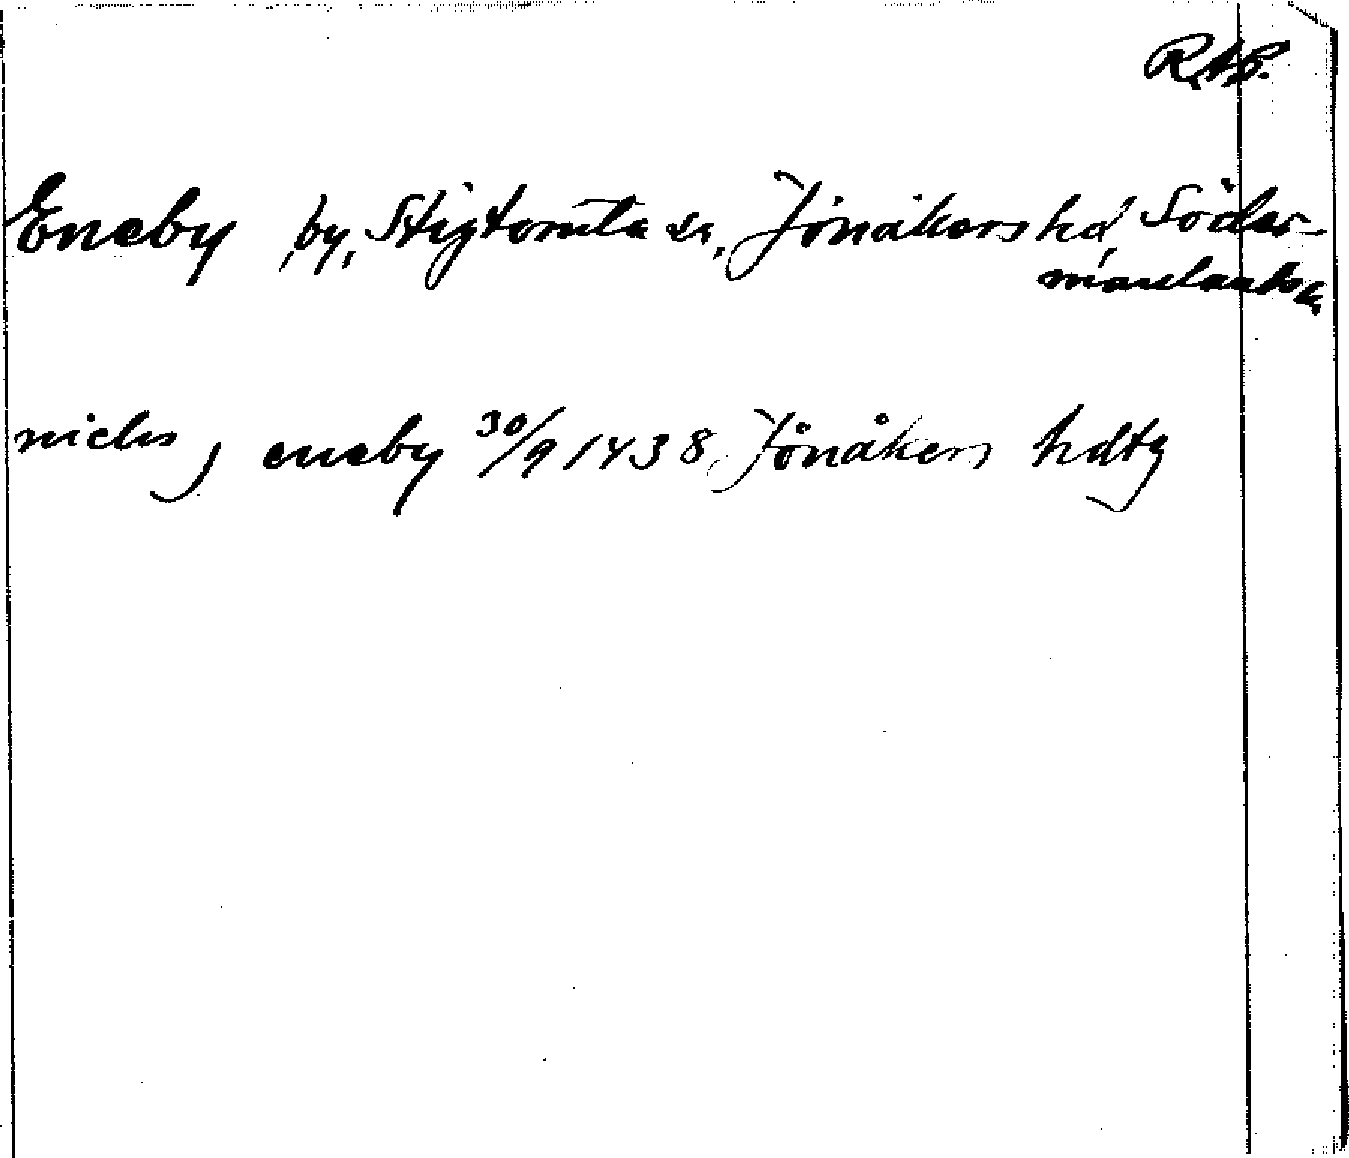 RAP.
Eneby, by, Stigtomta sn, Jönåkers hd, Söder-
manlands l.
niclis j eneby 30/9 1438, Jönåkers hdtg